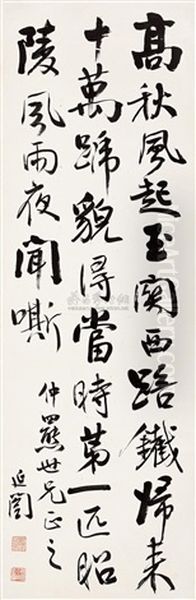 高秋風起玉關西踣鐵歸来
十萬蹄貌得當時第一匹昭
陵風雨夜聞嘶
仲羆世兄正之
延闓